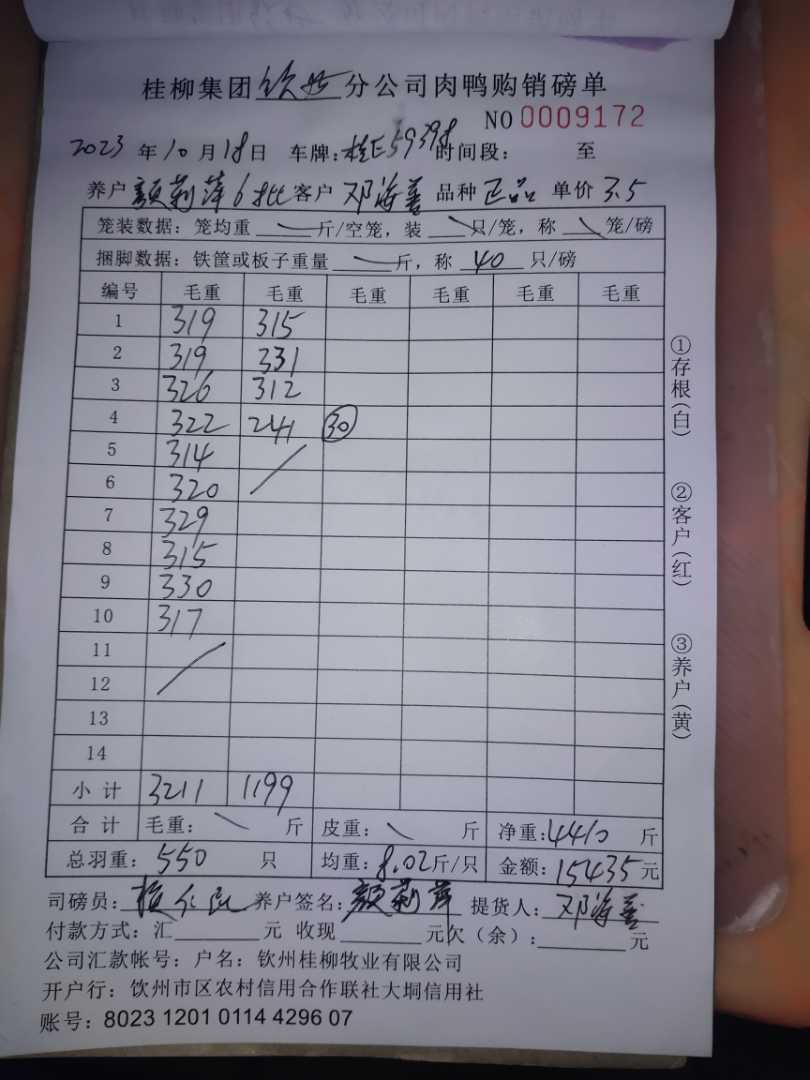 桂柳集团钦州分公司肉鸭购销磅单
NO 0009172
2023年10月18日 车牌:桂E59398 时间段: 至
养户颜莉萍6批客户邓海善品种正品单价3.5
笼装数据:笼均重 斤/空笼,装 只/笼,称 笼/磅
捆脚数据:铁筐或板子重量 斤,称 40 只/磅
编号 毛重 毛重 毛重 毛重 毛重 毛重
1 319 315
2 319 331
3 326 312
4 322 241 30
5 314
6 320
7 329
8 315
9 330
10 317
11
12
13
14
小计 3211 1199
合计 毛重: 斤 皮重: 斤 净重:4410 斤
总羽重:550 只 均重:8.02斤/只 金额:15435元
司磅员: 养户签名:颜莉萍 提货人:邓海善
付款方式:汇 元 收现 元欠(余): 元
公司汇款帐号:户名:钦州桂柳牧业有限公司
开户行:饮州市区农村信用合作联社大垌信用社
账号:8023 1201 0114 4296 07
①存根(白)
②客户(红)
③养户(黄)